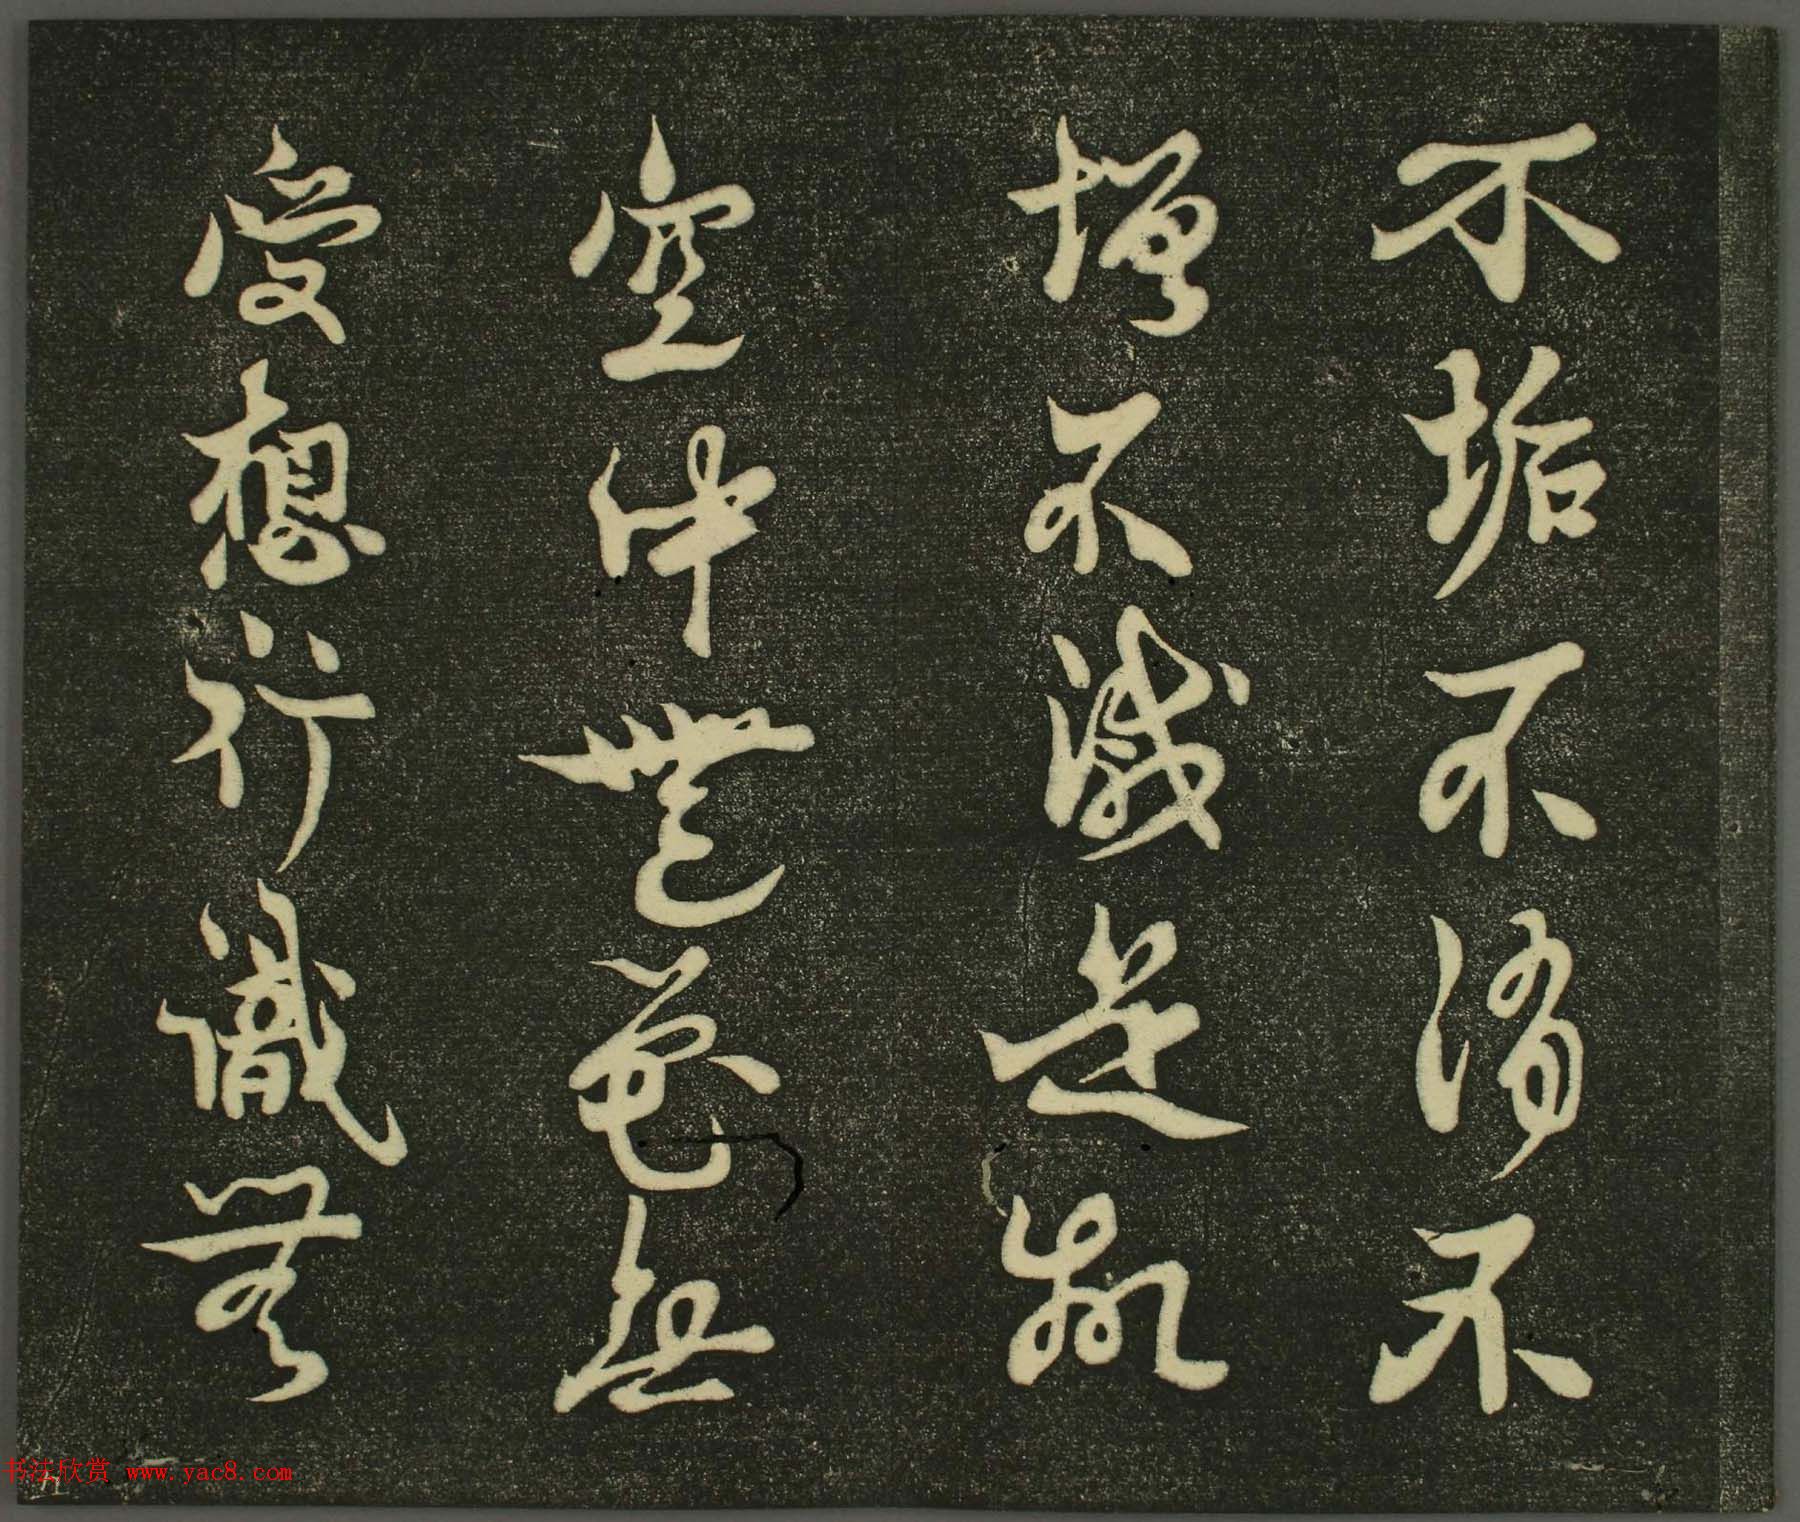 不垢不淨不
增不減是故
空中無色無
受想行識無
书法欣赏 www.yac8.com